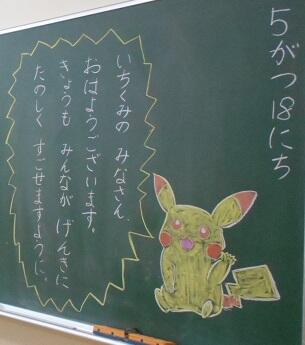 5がつ18にち
いちくみの みなさん、
おはようございます。
きょうも みんなが げんきに
たのしく すごせますように。